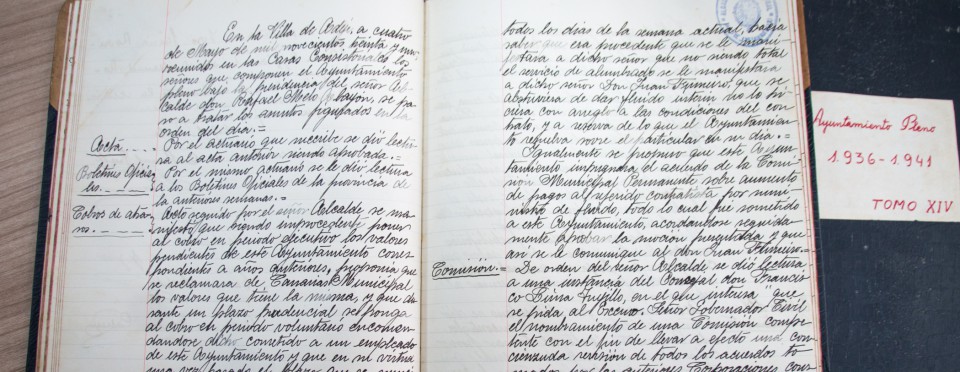 En la Villa de Adeje a cuatro
de Mayo de mil novecientos treinta y
reunidos en las Casas Consistoriales los
señores que componen el Ayuntamiento
pleno bajo la presidencia del señor Al-
calde don Rafael Melo Bayón, se pa-
só a tratar los asuntos figurados en la
orden del día:=
Acta.... Por el actuario que suscribe se dió lectu-
ra al acta anterior siendo aprobada.=
Boletines Oficia- Por el mismo actuario se le dió lectura
les. a los Boletines Oficiales de la provincia de
la anteriores semanas.=
Cobros de Acto seguido por el señor Alcalde se ma-
nifestó que siendo improcedente poner
al cobro en periodo ejecutivo los valores
pendientes de este Ayuntamiento corres-
pondientes a años anteriores, proponía que
se reclamara de Canarias Municipal
los valores que tiene la misma, y que du-
rante un plazo prudencial se ponga
al cobro en período voluntario encomen-
dandose dicho cometido a un empleado
de este Ayuntamiento y que en su virtud
una vez pasado el plazo que se
todos los dias de la semana actual, hacia
saber que era procedente que se le mani-
festara a dicho señor que no siendo total
el servicio de alumbrado se le manifestara
a dicho señor Don Juan, que se
abstuviera de dar fluido interin no lo hi-
ciera con arreglo a las condiciones del con-
trato, y a reserva de lo que el Ayuntamien-
to resuelva sobre el particular en su dia.=
Igualmente se propuso que este Ayun-
tamiento impugnara el acuerdo de la Comi-
sión Municipal Permanente sobre aumento
de pagos al referido contratista por sumi-
nistro de fluido, todo lo cual fué sometido
a este Ayuntamiento, acordandose seguida-
mente aprobar la mocion presentada y que
asi se le comunique al don Juan
Comisión.= De orden del señor Alcalde se dió lectura
a una instancia del Concejal don Francis-
co Trujillo, en el que interesa que
se pida al Excmo. Señor Gobernador Civil
el nombramiento de una Comisión compe-
tente con el fin de llevar a efecto una con-
cienzuda revisión de todos los acuerdos to-
mados por las anteriores Corporaciones
Ayuntamiento Pleno
1.936-1.941
TOMO XIV